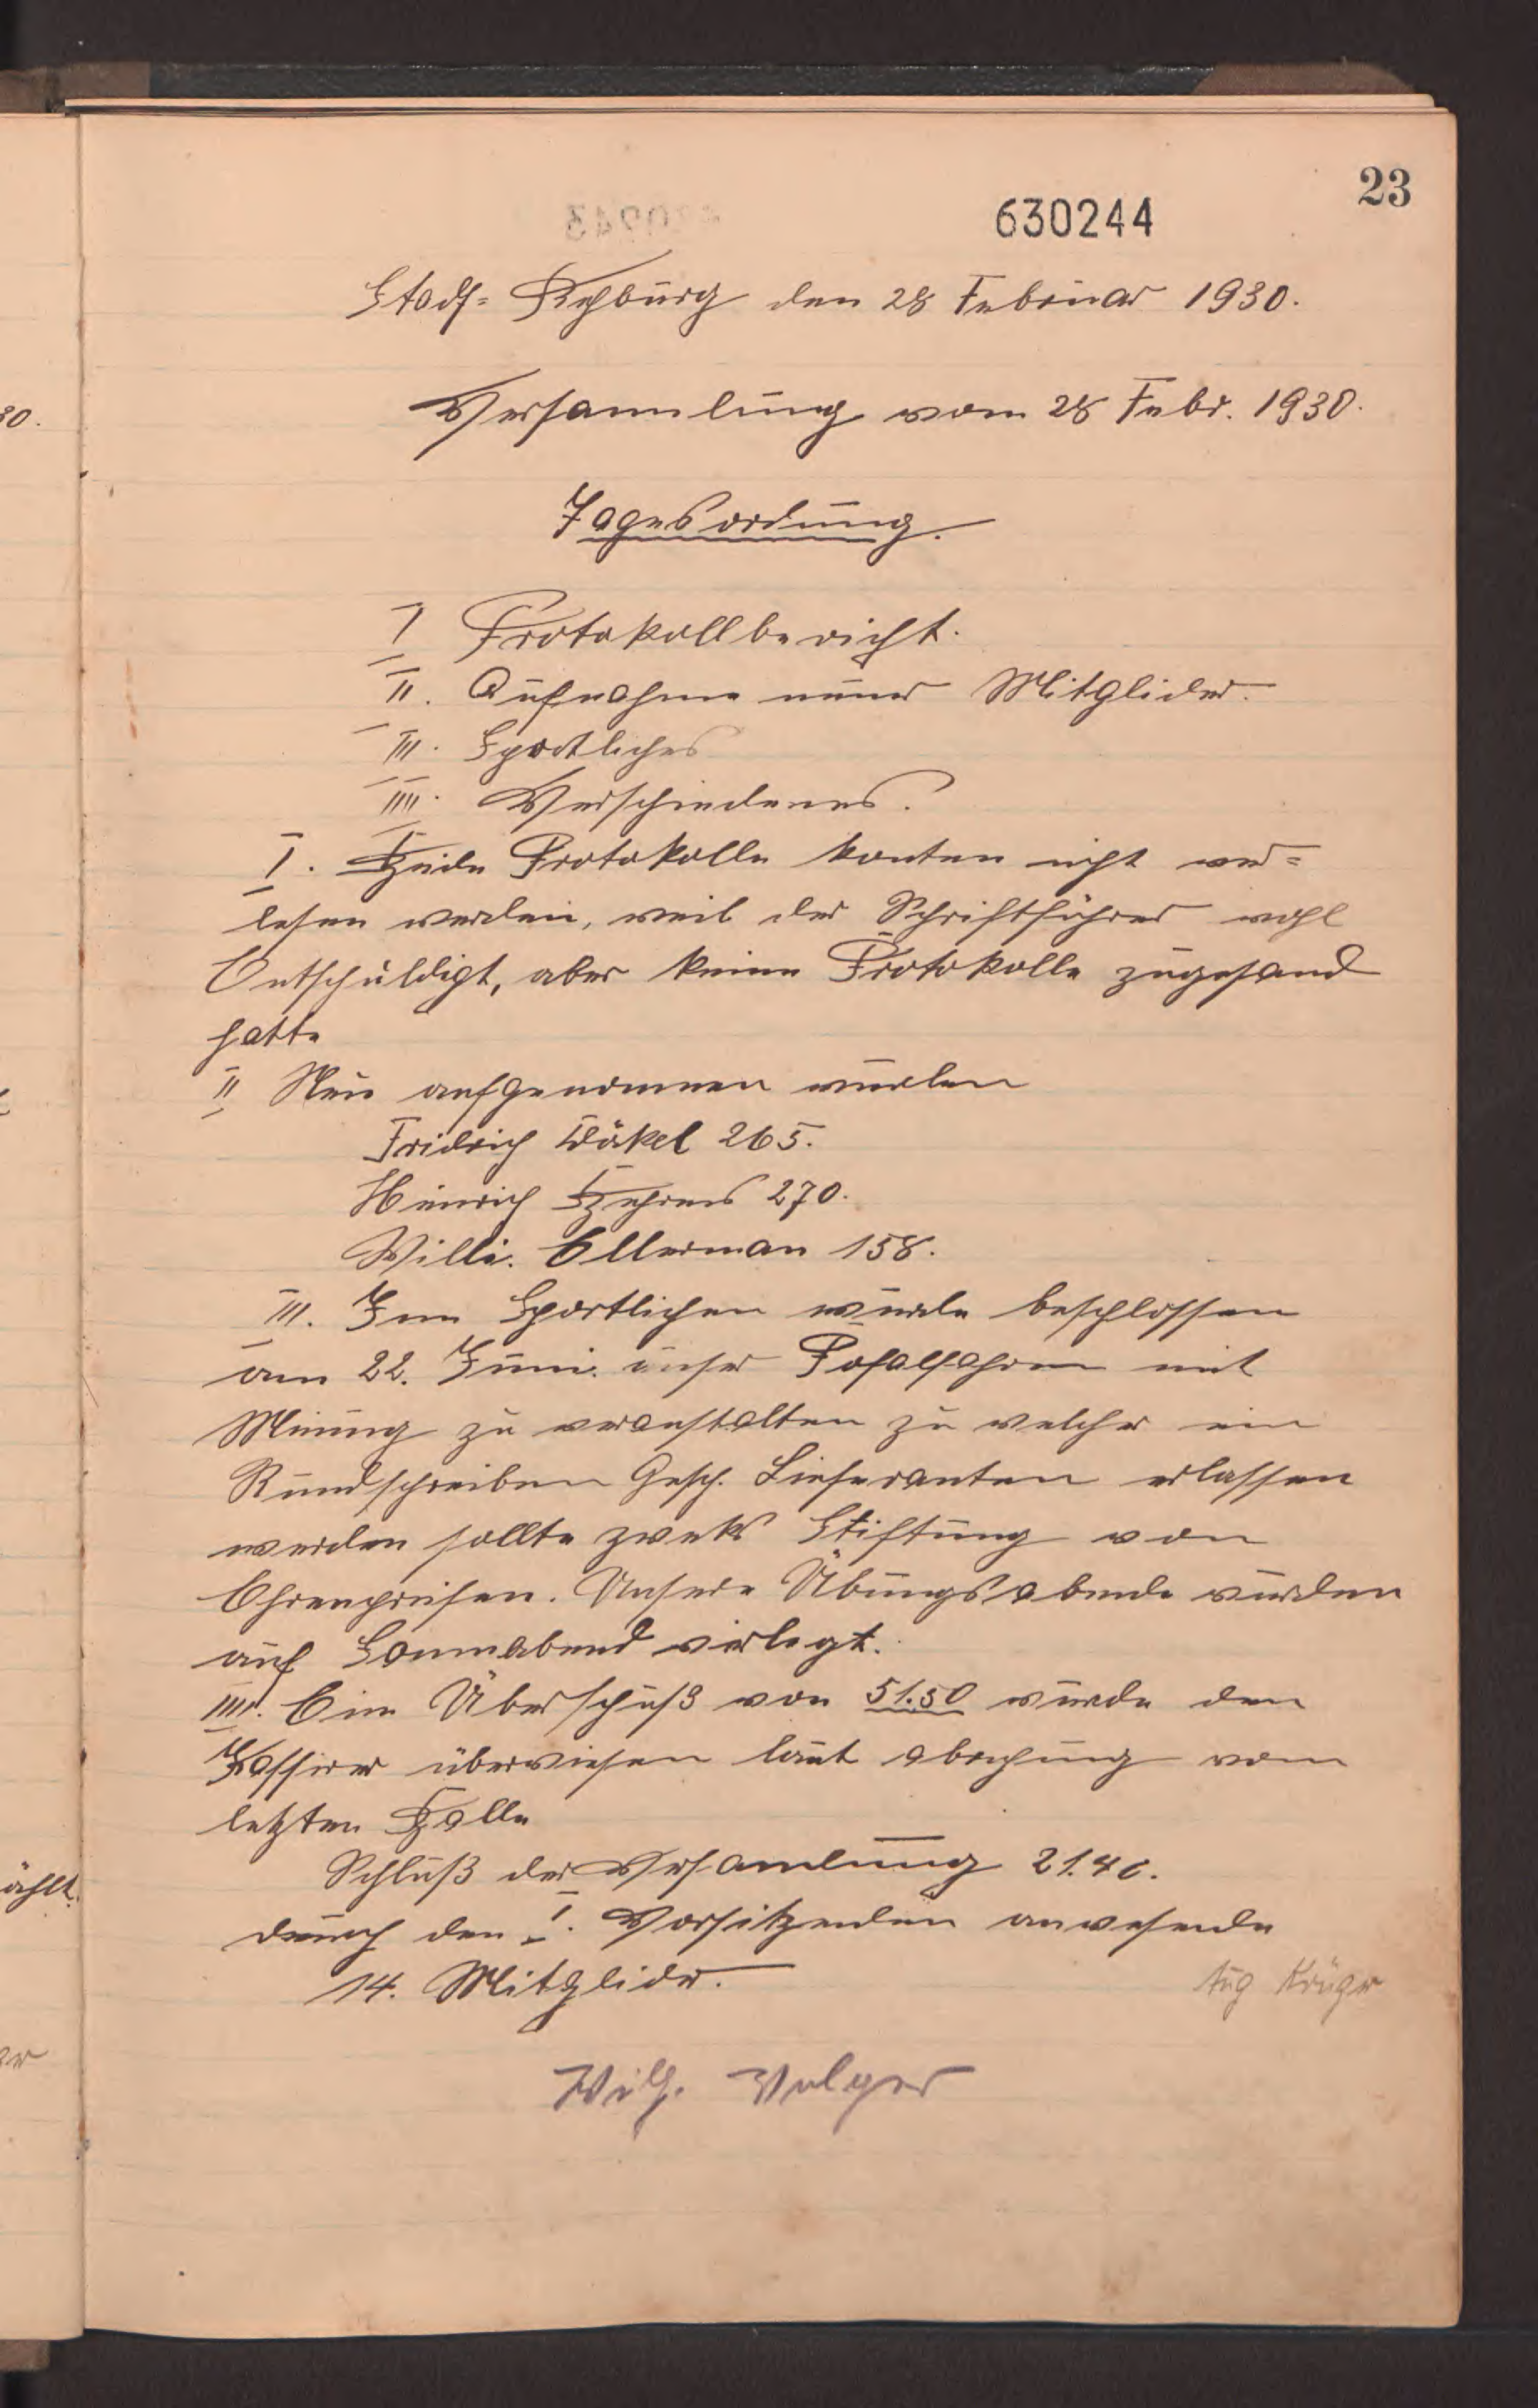 23
630244
Stadt-Rehburg den 28 Februar 1930.
Versammlung vom 28 Febr. 1930.
Tagesordung.
I Protokollbericht.
II. Aufnahme neuer Mitglider.
III. Sportliches
IIII. Verschiedenes.
I. Beide Protokolle konten nicht ver=
lesen werden, weil der Schriftführer wohl
Entschuldigt, aber keine Protokolle zugesand
hatte
II Neu aufgenommen wurden
Fridrich Däkel 265.
Heinrich Behrens 270.
Willi. Ellerman 158.
III. Im Sportlichen wurde beschlossen
am 22. Juni. unser mit
zu veranstalten zu welcher ein
Rundschreiben Gesch. Lieferanten erlassen
werden sollte zweks Stiftung von
Ehrenpreisen. Unsere Übungsabende wurden
auf Sonnabend verlegt.
IIII. Ein Überschuß von 51.50 wurde den
Kassirer überwiesen laut abrechung vom
letzten Balle
Schluß der Versamlung 21.40.
durch den I. Vorsitzenden anwesende
14. Mitglider.
Aug Krüger
Wilh.
30.
ählt.